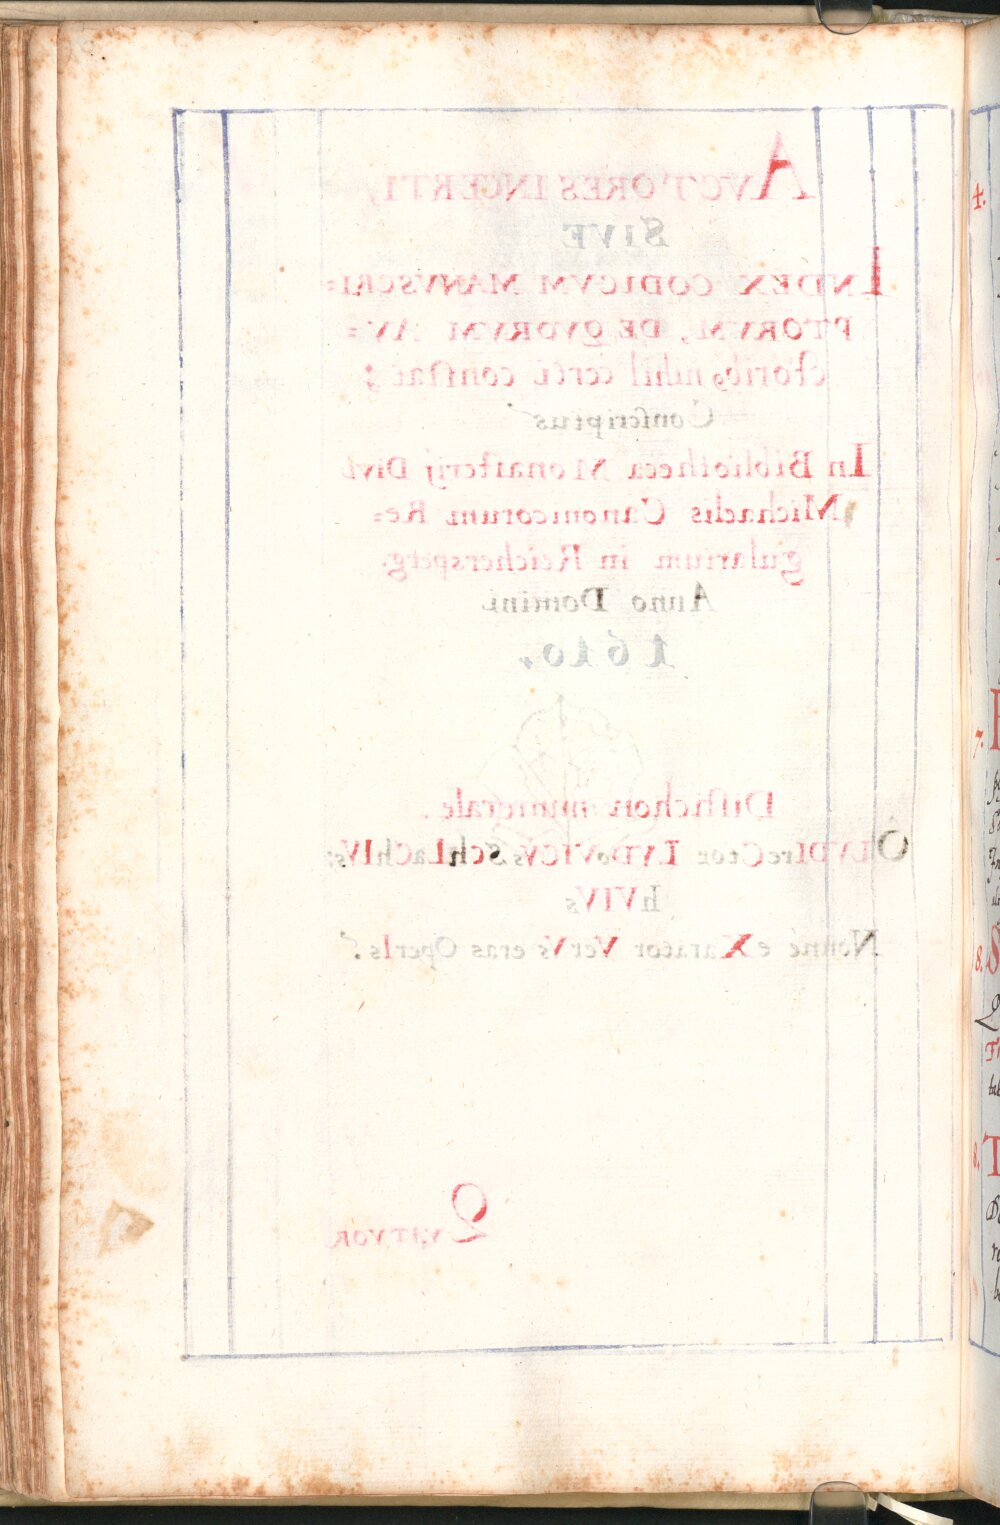 AVCTORES INCERTI,
SIVE
INDEX CODICVM MANVSCRI=
PTORVM, DE QVORVM AV=
ctorib9 nihil certi constat;
Conscriptus
In Bibliotheca Monasterij Divi
Michaelis Canonicorum Re=
gularium in Reichersperg.
Anno Domini
1610.
Distichon numerale.
DIreCtor LVDoVICVs
hVIVs
Nonne eXarator VerVs eras OperIs?
QVATVOR
4.
7.
8.
8.